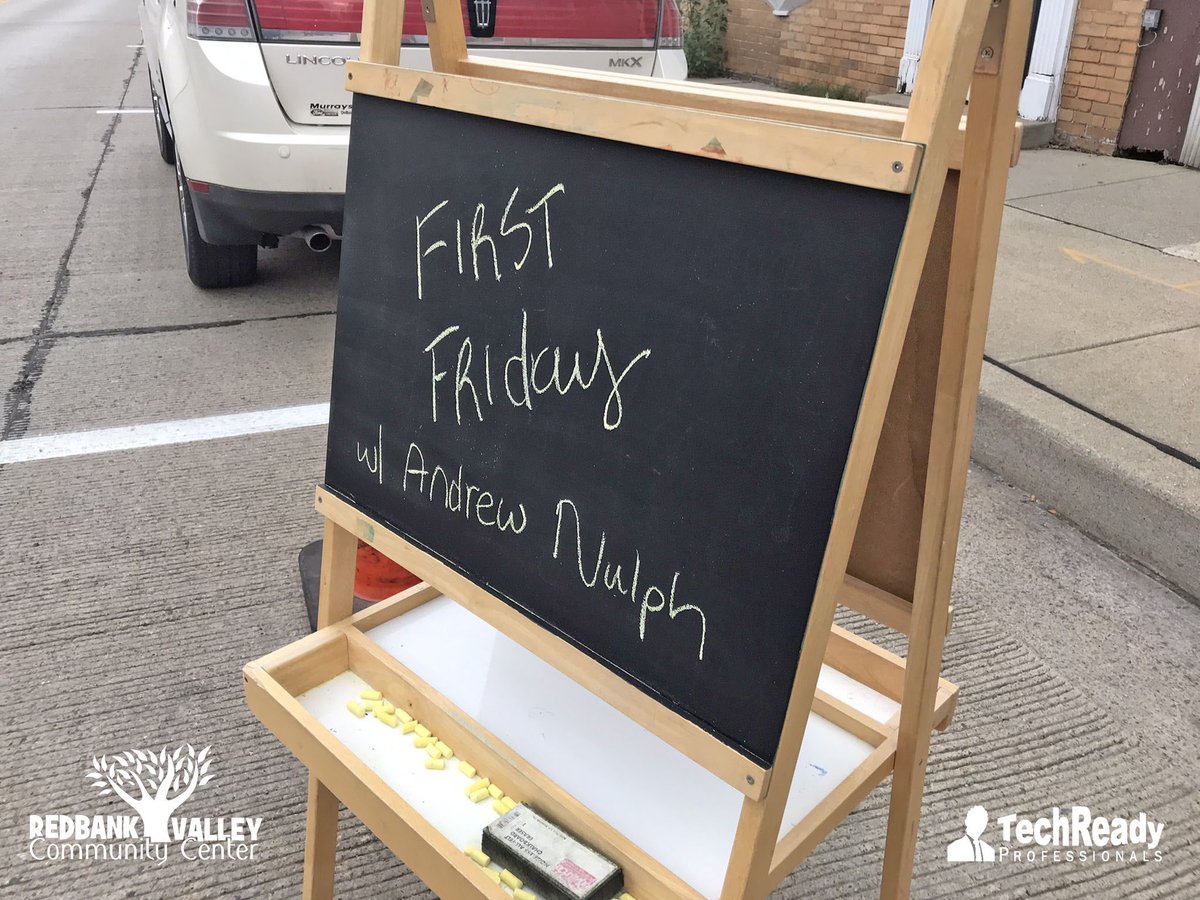 LINCOLN
MKX
Murrays
FIRST
FRIday
w/ Andrew Nulph
REDBANK VALLEY
Community Center
TechReady
PROFESSIONALS